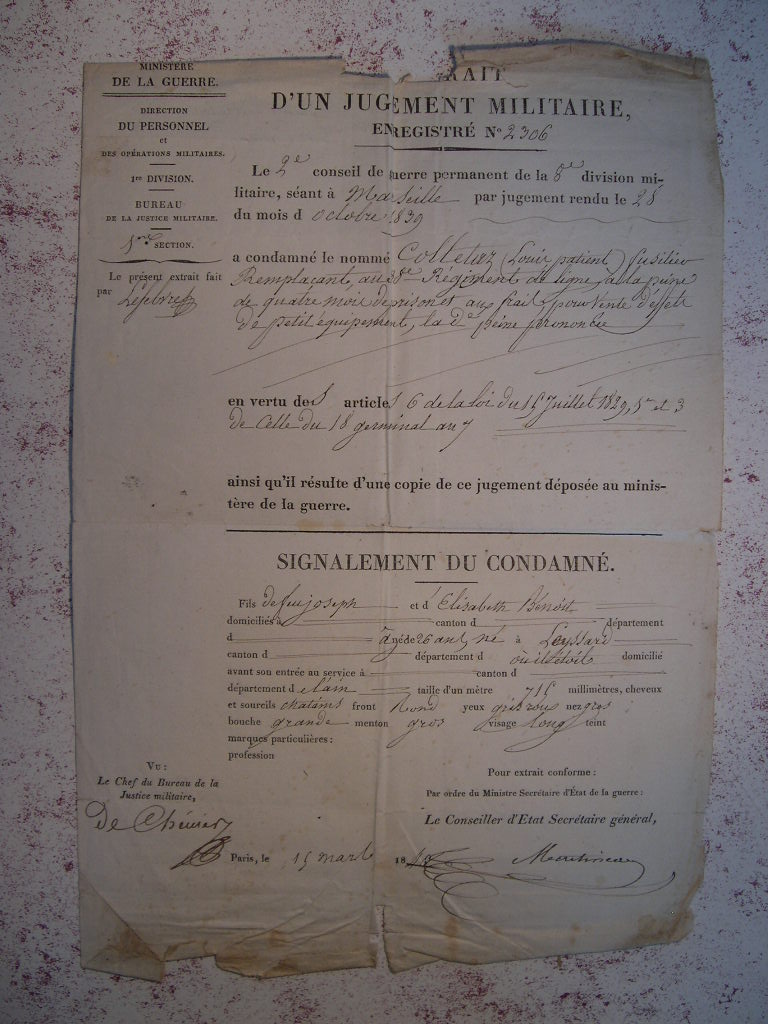 MINISTÈRE
DE LA GUERRE.
DIRECTION
DU PERSONNEL
et
DES OPÉRATIONS MILITAIRES.
1re DIVISION.
BUREAU
DE LA JUSTICE MILITAIRE.
SECTION.
Le présent extrait fait
par Lefebvre
RAIT
D'UN JUGEMENT MILITAIRE,
ENREGISTRÉ No 2306
Le 2e conseil de guerre permanent de la 8e division mi-
litaire, séant à Marseille par jugement rendu le 28
du mois d octobre 1839
a condamné le nommé Colletaz (Louis patient) fusilier
Remplaçant, au 38e Régiment de ligne, à la peine
de quatre mois de prison et aux frais, pour vente d'effets
de petit équipement, la de peine prononcée
en vertu des articles 6 de la loi du 15 Juillet 1829, 1er et 3
de Celle du 18 germinal an 7
ainsi qu'il résulte d'une copie de ce jugement déposée au minis-
tère de la guerre.
SIGNALEMENT DU CONDAMNÉ.
Fils de feu joseph et d' Elisabeth Bénoit
domiciliés à canton d département
d âgé de 26 ans, né à Leyssard
canton d département d où il était domicilié
avant son entrée au service à canton d
département d e l'ain taille d'un mètre 715 millimètres, cheveux
et sourcils chatains front Rond yeux gris roux nez gros
bouche grande menton gros visage long teint
marques particulières :
profession
Vu :
Le Chef du Bureau de la
Justice militaire,
Pour extrait conforme :
Par ordre du Ministre Secrétaire d'État de la guerre :
Le Conseiller d'Etat Secrétaire général,
Paris, le 15 mars 18